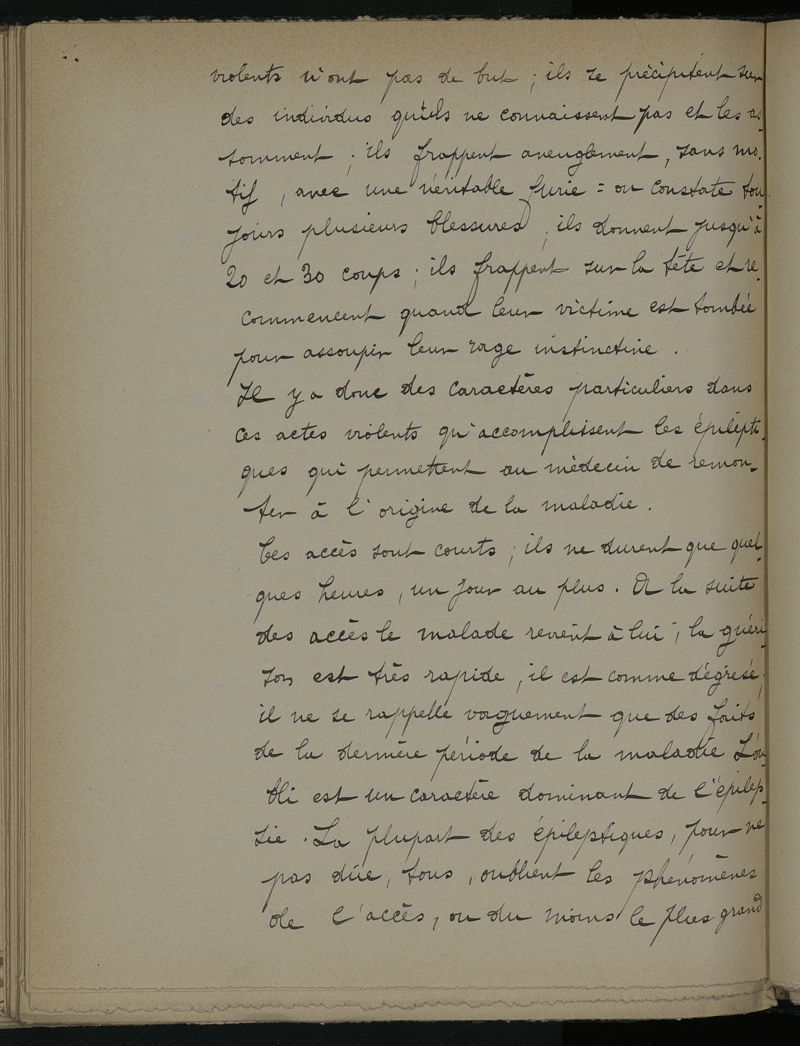 violents n'ont pas de but ; ils se précipitent sur
des individus qu'ils ne connaissent pas et les as-
somment ; ils frappent aveuglement, sans mo-
tif, avec une véritable furie = on constate tou-
jours plusieurs blessures ; ils donnent jusqu'à
20 et 30 coups ; ils frappent sur la tête et re-
commencent quand leur victime est tombée
pour assoupir leur rage instinctive.
Il y a donc des caractères particuliers dans
ces actes violents qu'accomplissent les épilepti-
ques qui permettent au médecin de remon-
ter à l'origine de la maladie.
Ces accès sont courts ; ils ne durent que quel-
ques heures, un jour au plus. A la suite
des accès le malade revient à lui ; la guéri-
son est très rapide, il est comme dégrisé ;
il ne se rappelle vaguement que des faits
de la dernière période de la maladie L'ou-
bli est un caractère dominant de l'épilep-
sie. La plupart des épileptiques, pour ne
pas dire, tous, oublient les phénomènes
de l'accès, ou du moins le plus grand